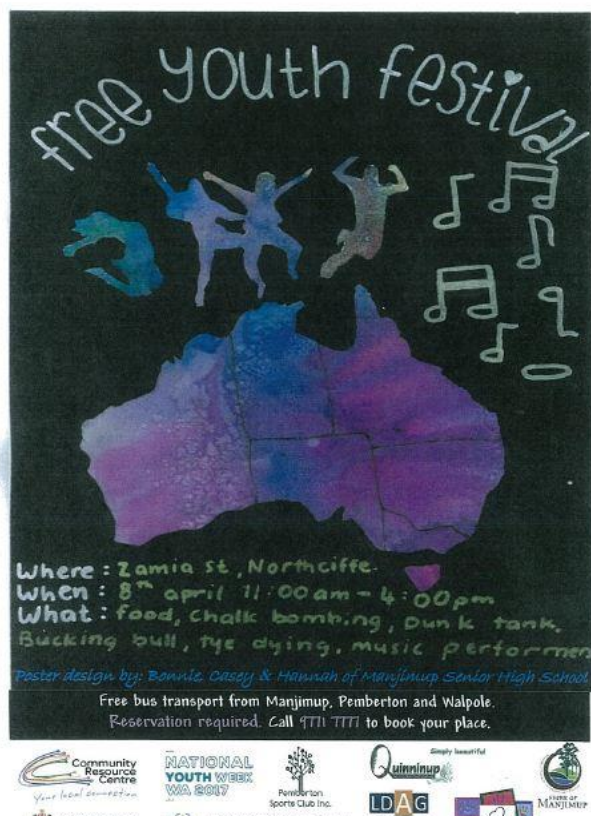 free youth festival
Where : Zamia st, Northciffe.
When : 8th april 11:00am - 4:00pm
What : food, Chalk bombing, Dunk tank,
Bucking bull, tye dying, music performers
Poster design by: Bonnie, Casey & Hannah of Manjimup Senior High School
Free bus transport from Manjimup, Pemberton and Walpole.
Reservation required. Call 9771 7777 to book your place.
Community Resource Centre
Your local connection
NATIONAL YOUTH WEEK WA 2017
Pemberton Sports Club Inc.
Simply beautiful
Quinninup
LDAG
SHIRE OF MANJIMUP